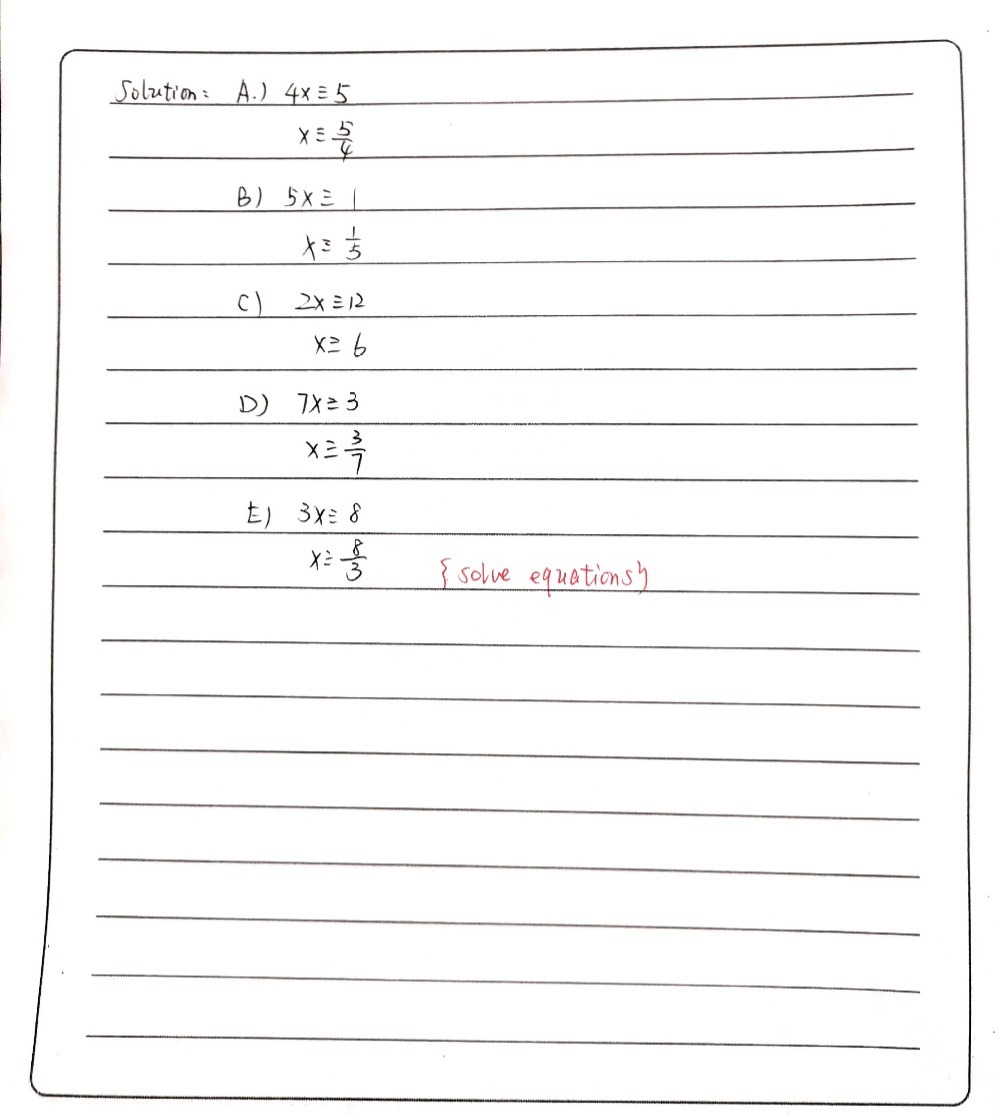 Solution: A.) 4x ≡ 5
x ≡ 5/4
B) 5x ≡ 1
x ≡ 1/5
C) 2x ≡ 12
x ≡ 6
D) 7x ≡ 3
x ≡ 3/7
E) 3x ≡ 8
x ≡ 8/3
{solve equations}